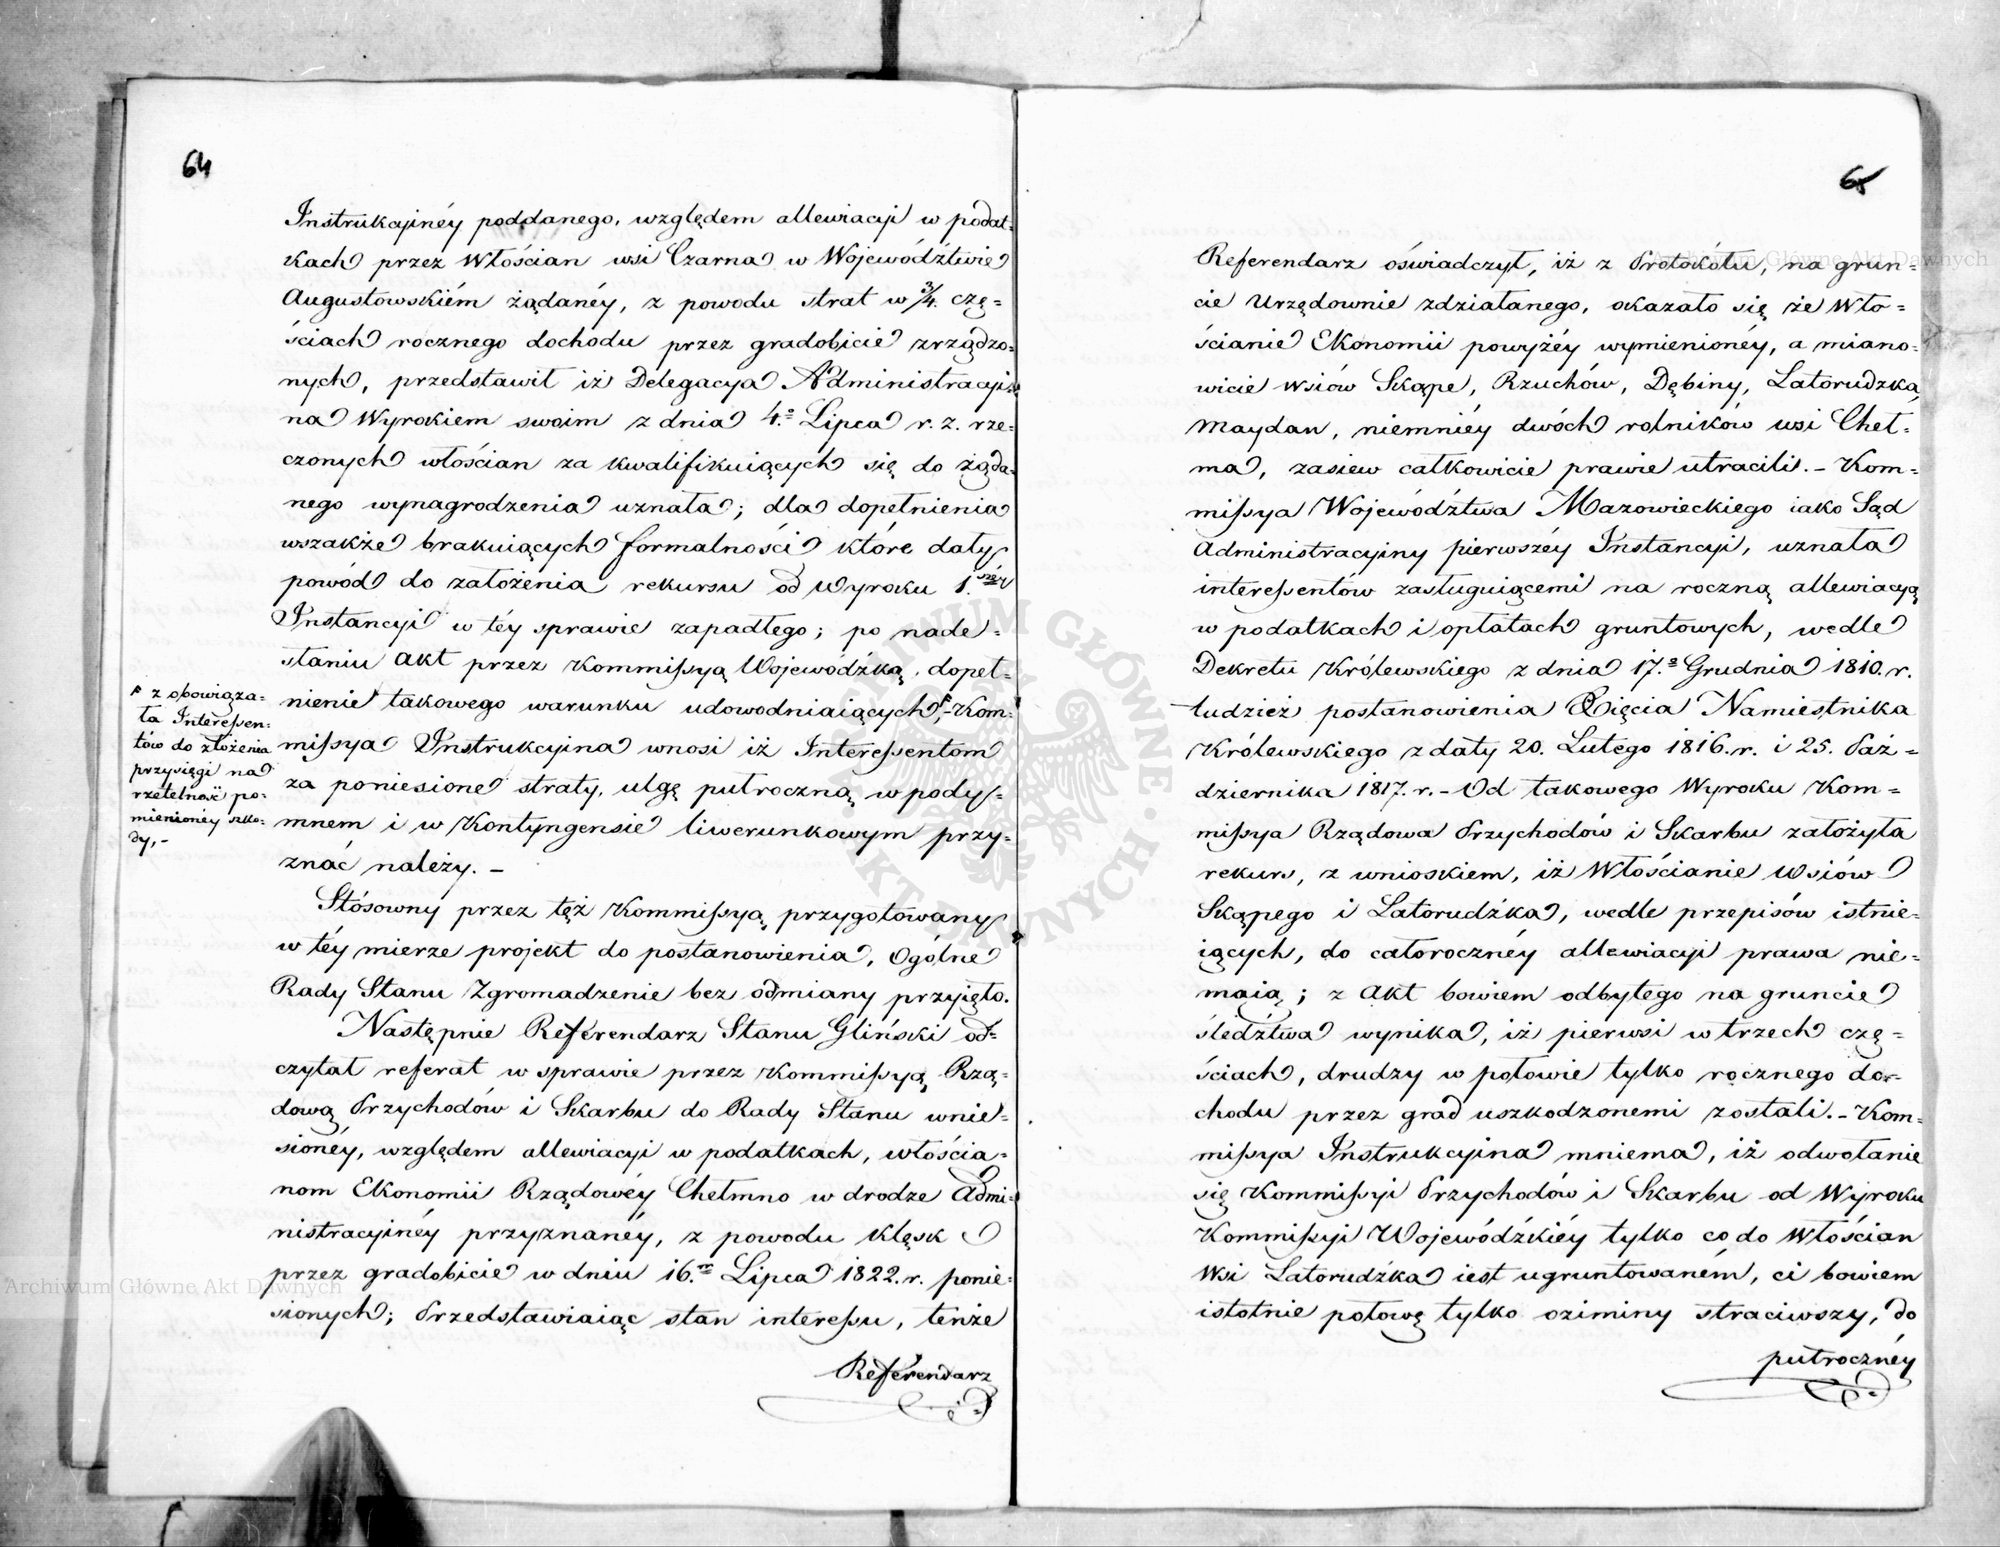 64
Instrukcyinéy poddanego, względem allewiacyi w podat-
kach przez Włościan wsi Czarna w Województwie
Augustowskiém żądanéy, z powodu strat w 3/4. czę-
ściach rocznego dochodu przez gradobicie zrządzo-
nych, przedstawił iż Delegacya Administracyi-
na Wyrokiem swoim z dnia 4.º Lipca r. z. rze-
czonych włościan za kwalifikuiących się do żąda-
nego wynagrodzenia uznała; dla dopełnienia
wszakże brakuiących formalności które dały
powód do założenia rekursu od Wyroku 1.széy
Instancyi w téy sprawie zapadłego; po nade-
słaniu Akt przez Kommissyą Wojewódzką, dopeł-
nienie takowego warunku udowodniaiących,F-Kom-
missya Instrukcyina wnosi iż Interessentom
za poniesione straty, ulgę pułroczną w pody-
mnem i w Kontyngensie liwerunkowym przy-
znać należy. -
F z obowiąza-
ła Interessen-
tów do złożenia
przysięgi na
rzetelność po-
mienioney szko-
dy,-
Stósowny przez tęż Kommissyą przygotowany
w téy mierze projekt do postanowienia, Ogólne
Rady Stanu Zgromadzenie bez odmiany przyięło.
Następnie Referendarz Stanu Gliński od-
czytał referat w sprawie przez Kommissyą Rzą-
dową Przychodów i Skarbu do Rady Stanu wnie-
sionéy, względem allewiacyi w podatkach, włościa-
nom Ekonomii Rządowéy Chełmno w drodze Admi-
nistracyinéy przyznanéy, z powodu klęsk
przez gradobicie w dniu 16.m Lipca 1822. r. ponie-
sionych; Przedstawiaiąc stan interessu, tenże
Referendarz
65
Referendarz oświadczył, iż z Protokółu, na grun-
cie Urzędownie zdziałanego, okazało się że Wło-
ścianie Ekonomii powyżéy wymienionéy, a miano-
wicie wsiów Skąpe, Rzuchów, Dębiny, Latorudzka,
Maydan, niemniéy dwóch rolników wsi Cheł-
ma, zasiew całkowicie prawie utracili. - Kom-
missya Województwa Mazowieckiego iako Sąd
Administracyiny pierwszéy Instancyi, uznała
interessentów zasługuiącemi na roczną allewiacyą
w podatkach i opłatach gruntowych, wedle
Dekretu Królewskiego z dnia 17.º Grudnia 1810. r.
tudzież postanowienia Xięcia Namiestnika
Królewskiego z daty 20. Lutego 1816. r. i 25. Paź-
dziernika 1817. r. - Od takowego Wyroku Kom-
missya Rządowa Przychodów i Skarbu założyła
rekurs, z wnioskiem, iż Włościanie Wsiów
Skąpego i Latorudźka, wedle przepisów istnie-
iących, do całorocznéy allewiacyi prawa nie-
maią; z Akt bowiem odbytego na gruncie
śledźtwa wynika, iż pierwsi w trzech czę-
ściach, drudzy w połowie tylko rocznego do-
chodu przez grad uszkodzonemi zostali. - Kom-
missya Instrukcyina mniema, iż odwołanie
się Kommissyi Przychodów i Skarbu od Wyroku
Kommissyi Wojewódźkiéy tylko co do Włościan
Wsi Latorudźka iest ugruntowaném, ci bowiem
istotnie połowę tylko oziminy straciwszy, do
pułrocznéy
Archiwum Główne Akt Dawnych
Archiwum Główne Akt Dawnych
ARCHIWUM GŁÓWNE AKT DAWNYCH